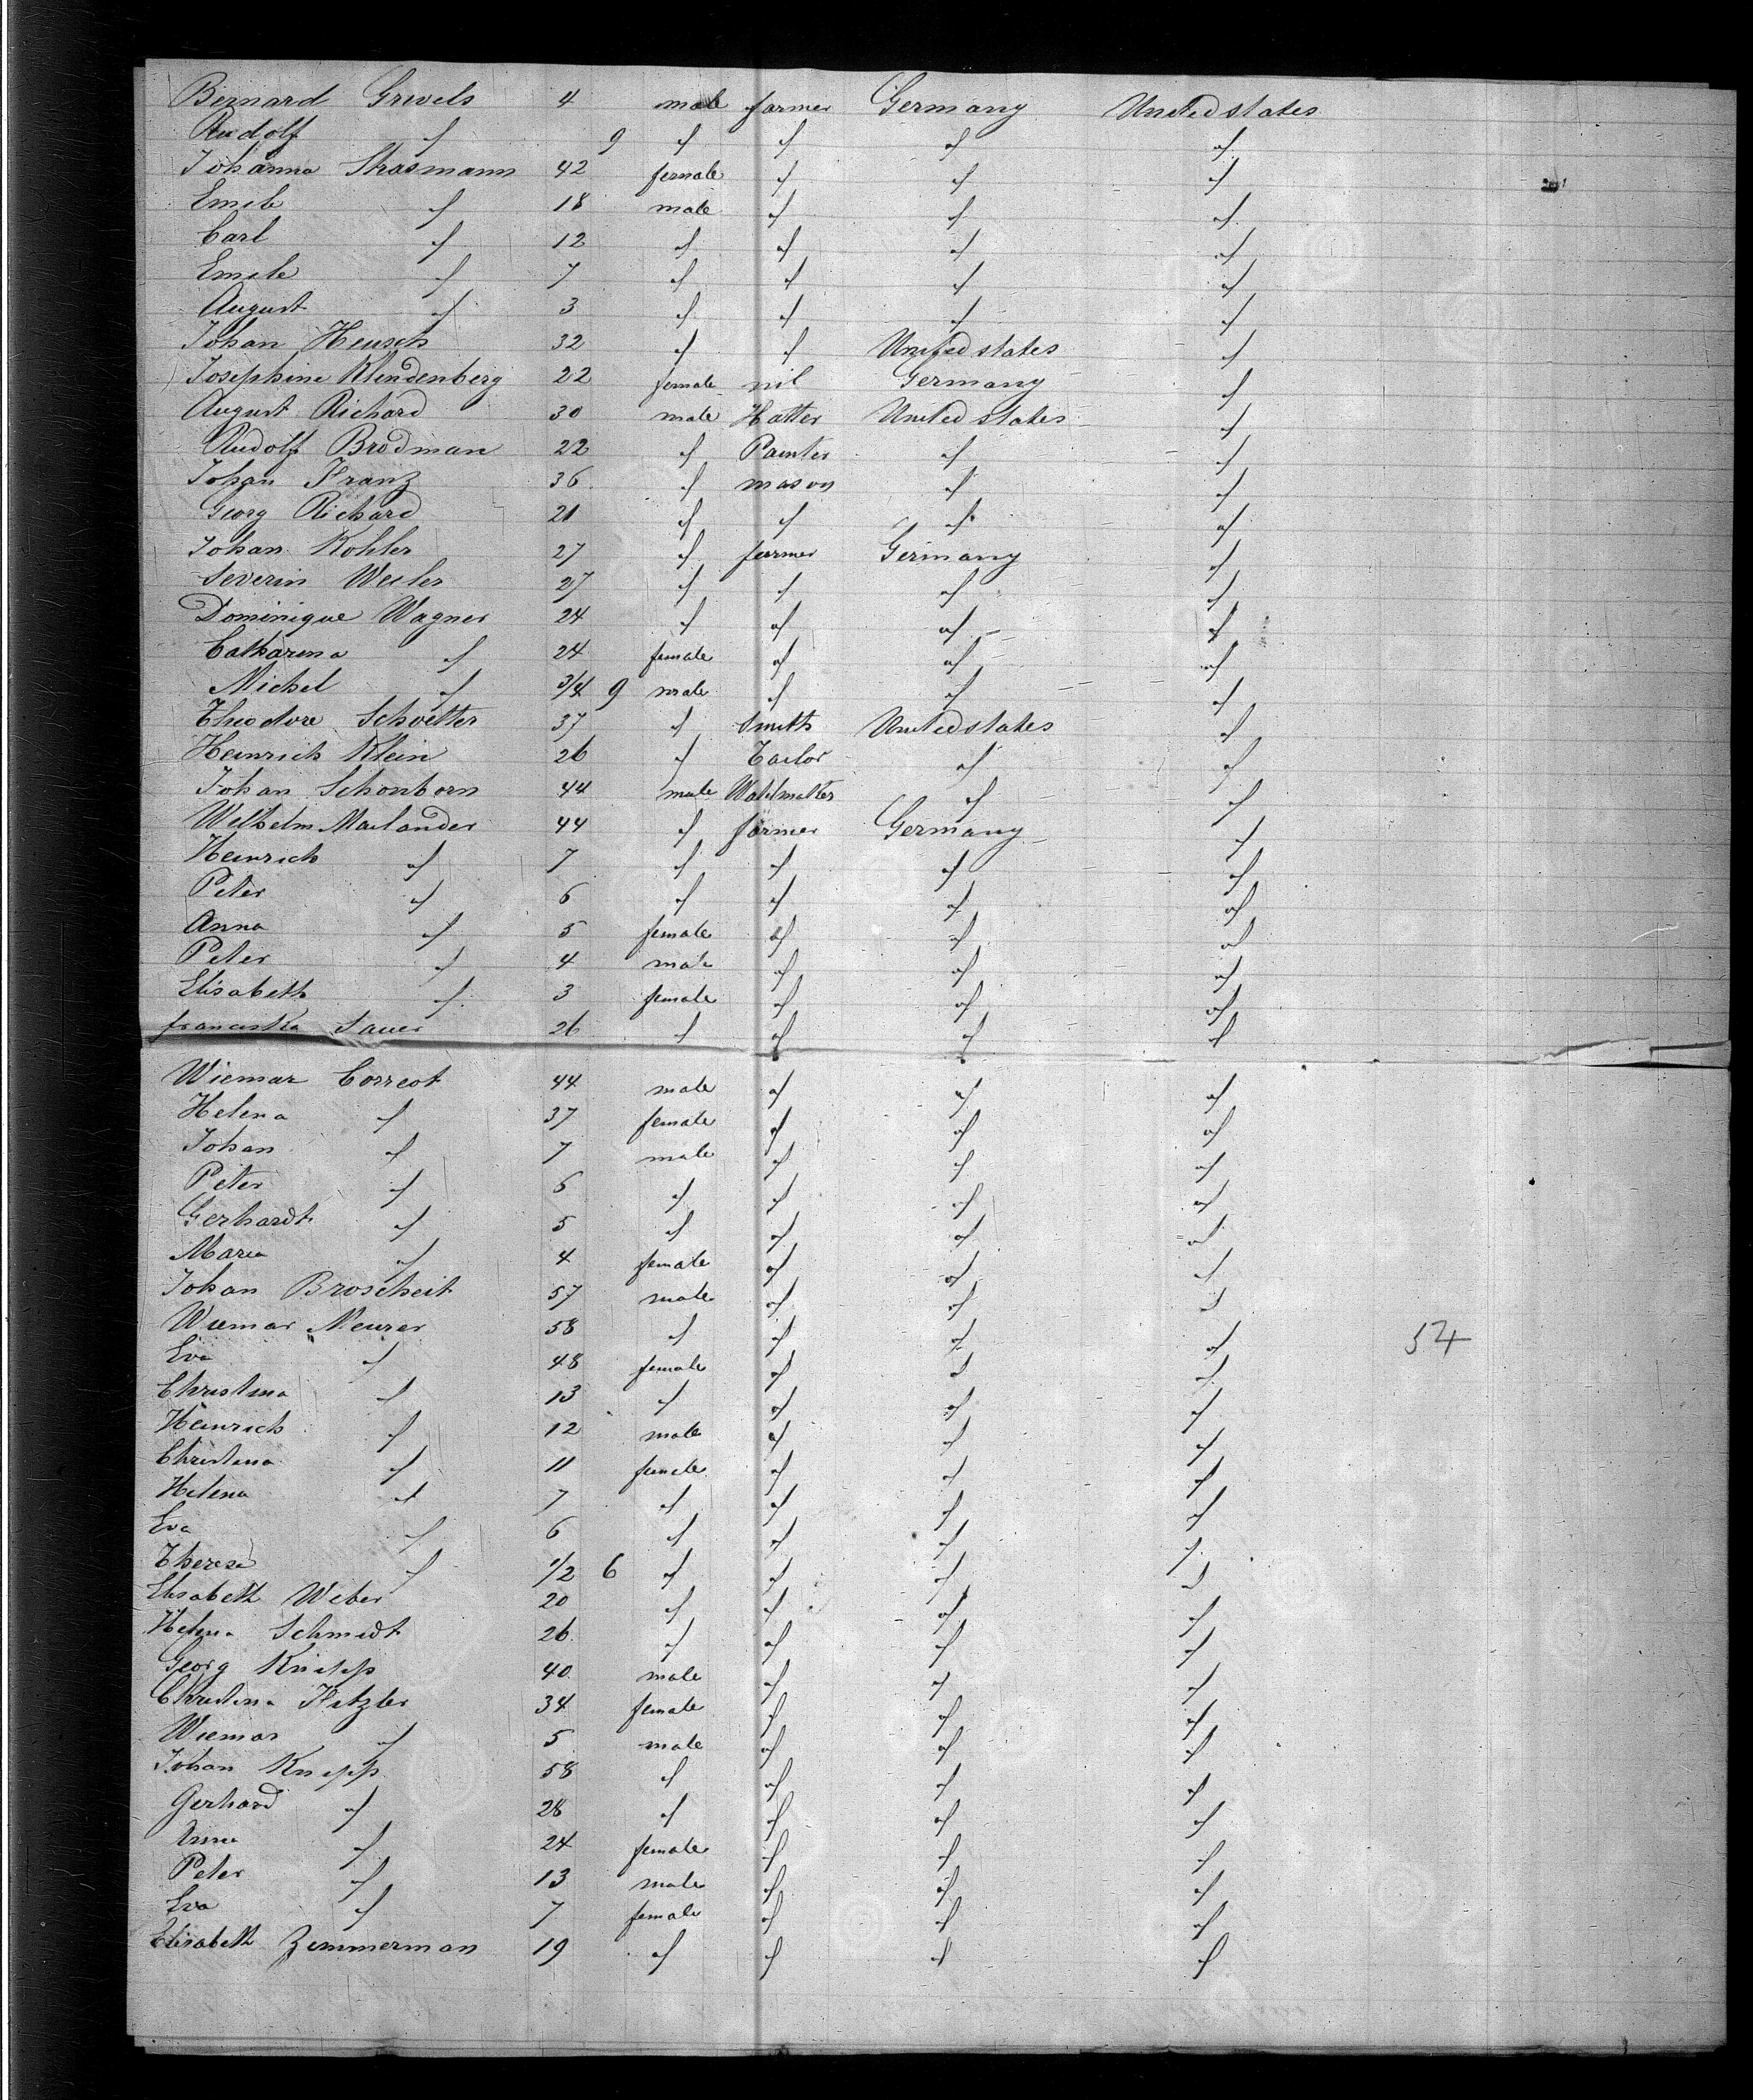 Bernard Grevels 4 male farmer Germany United states
Rudolf " 9 " " " "
Johanna Strasmann 42 female " " "
Emile " 18 male " " "
Carl " 12 " " " "
Emile " 7 " " " "
August " 3 " " " "
Johan Heusch 32 " " United states "
Josephine Klindenberg 22 female nil Germany "
August Richard 30 male Hatter United states "
Rudolf Brodman 22 " Painter " "
Johan Franz 36 " mason " "
Georg Richard 21 " " " "
Johan Kohler 27 " farmer Germany "
Severin Weiler 27 " " " "
Dominique Wagner 24 " " " "
Catharina " 24 female " " "
Michel " 3/4 9 male " " "
Theodore Schvetter 37 " Smith United states "
Heinrich Klein 26 " Tailor " "
Johan Schonborn 44 male Watchmaker " "
Wilhelm Mailander 44 " farmer Germany "
Heinrich " 7 " " " "
Peter " 6 " " " "
Anna " 5 female " " "
Peter " 4 male " " "
Elisabeth " 3 female " " "
franciska Sauer 26 " " " "
Wiemar Correot 44 male " " "
Helena " 37 female " " "
Johan " 7 male " " "
Peter " 6 " " " "
Gerhardt " 5 " " " "
Maria " 4 female " " "
Johan Broscheit 57 male " " "
Wiemar Meurer 58 " " " " 54
Eva " 48 female " " "
Christina " 13 " " " "
Heinrich " 12 male " " "
Christina " 11 female " " "
Helena " 7 " " " "
Eva " 6 " " " "
Theresa " 1/2 6 " " " "
Elisabeth Weber 20 " " " "
Helena Schmidt 26 " " " "
Georg Knipp 40 male " " "
Christina Hitzler 34 female " " "
Wiemar " 5 male " " "
Johan Knipp 58 " " " "
Gerhard " 28 " " " "
Anna " 24 female " " "
Peter " 13 male " " "
Eva " 7 female " " "
Elisabeth Zimmerman 19 " " " "